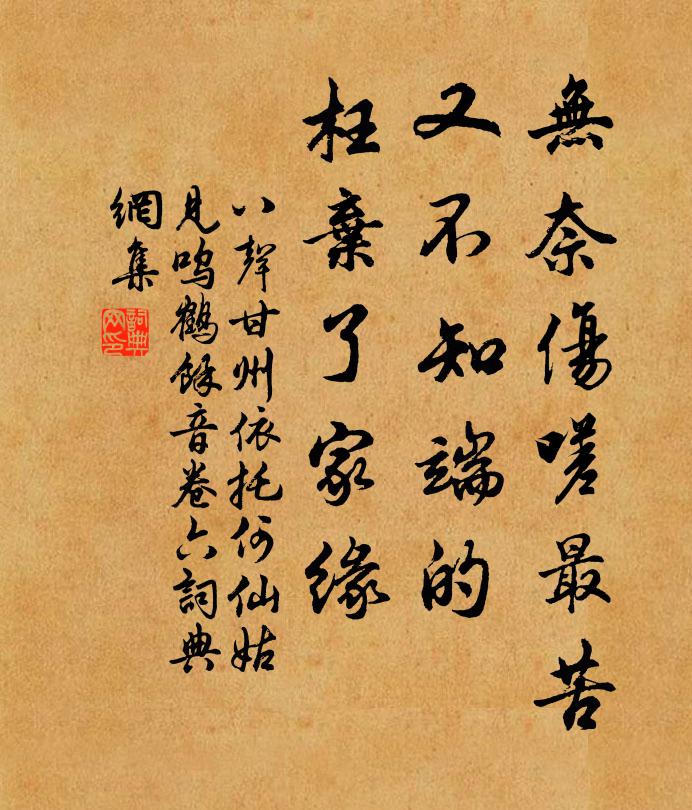 無奈傷嗟最苦
又不知端的
枉棄了家緣
八聲甘州依托何仙姑
見鳴鶴餘音卷六詞典
網集
詞典
网印